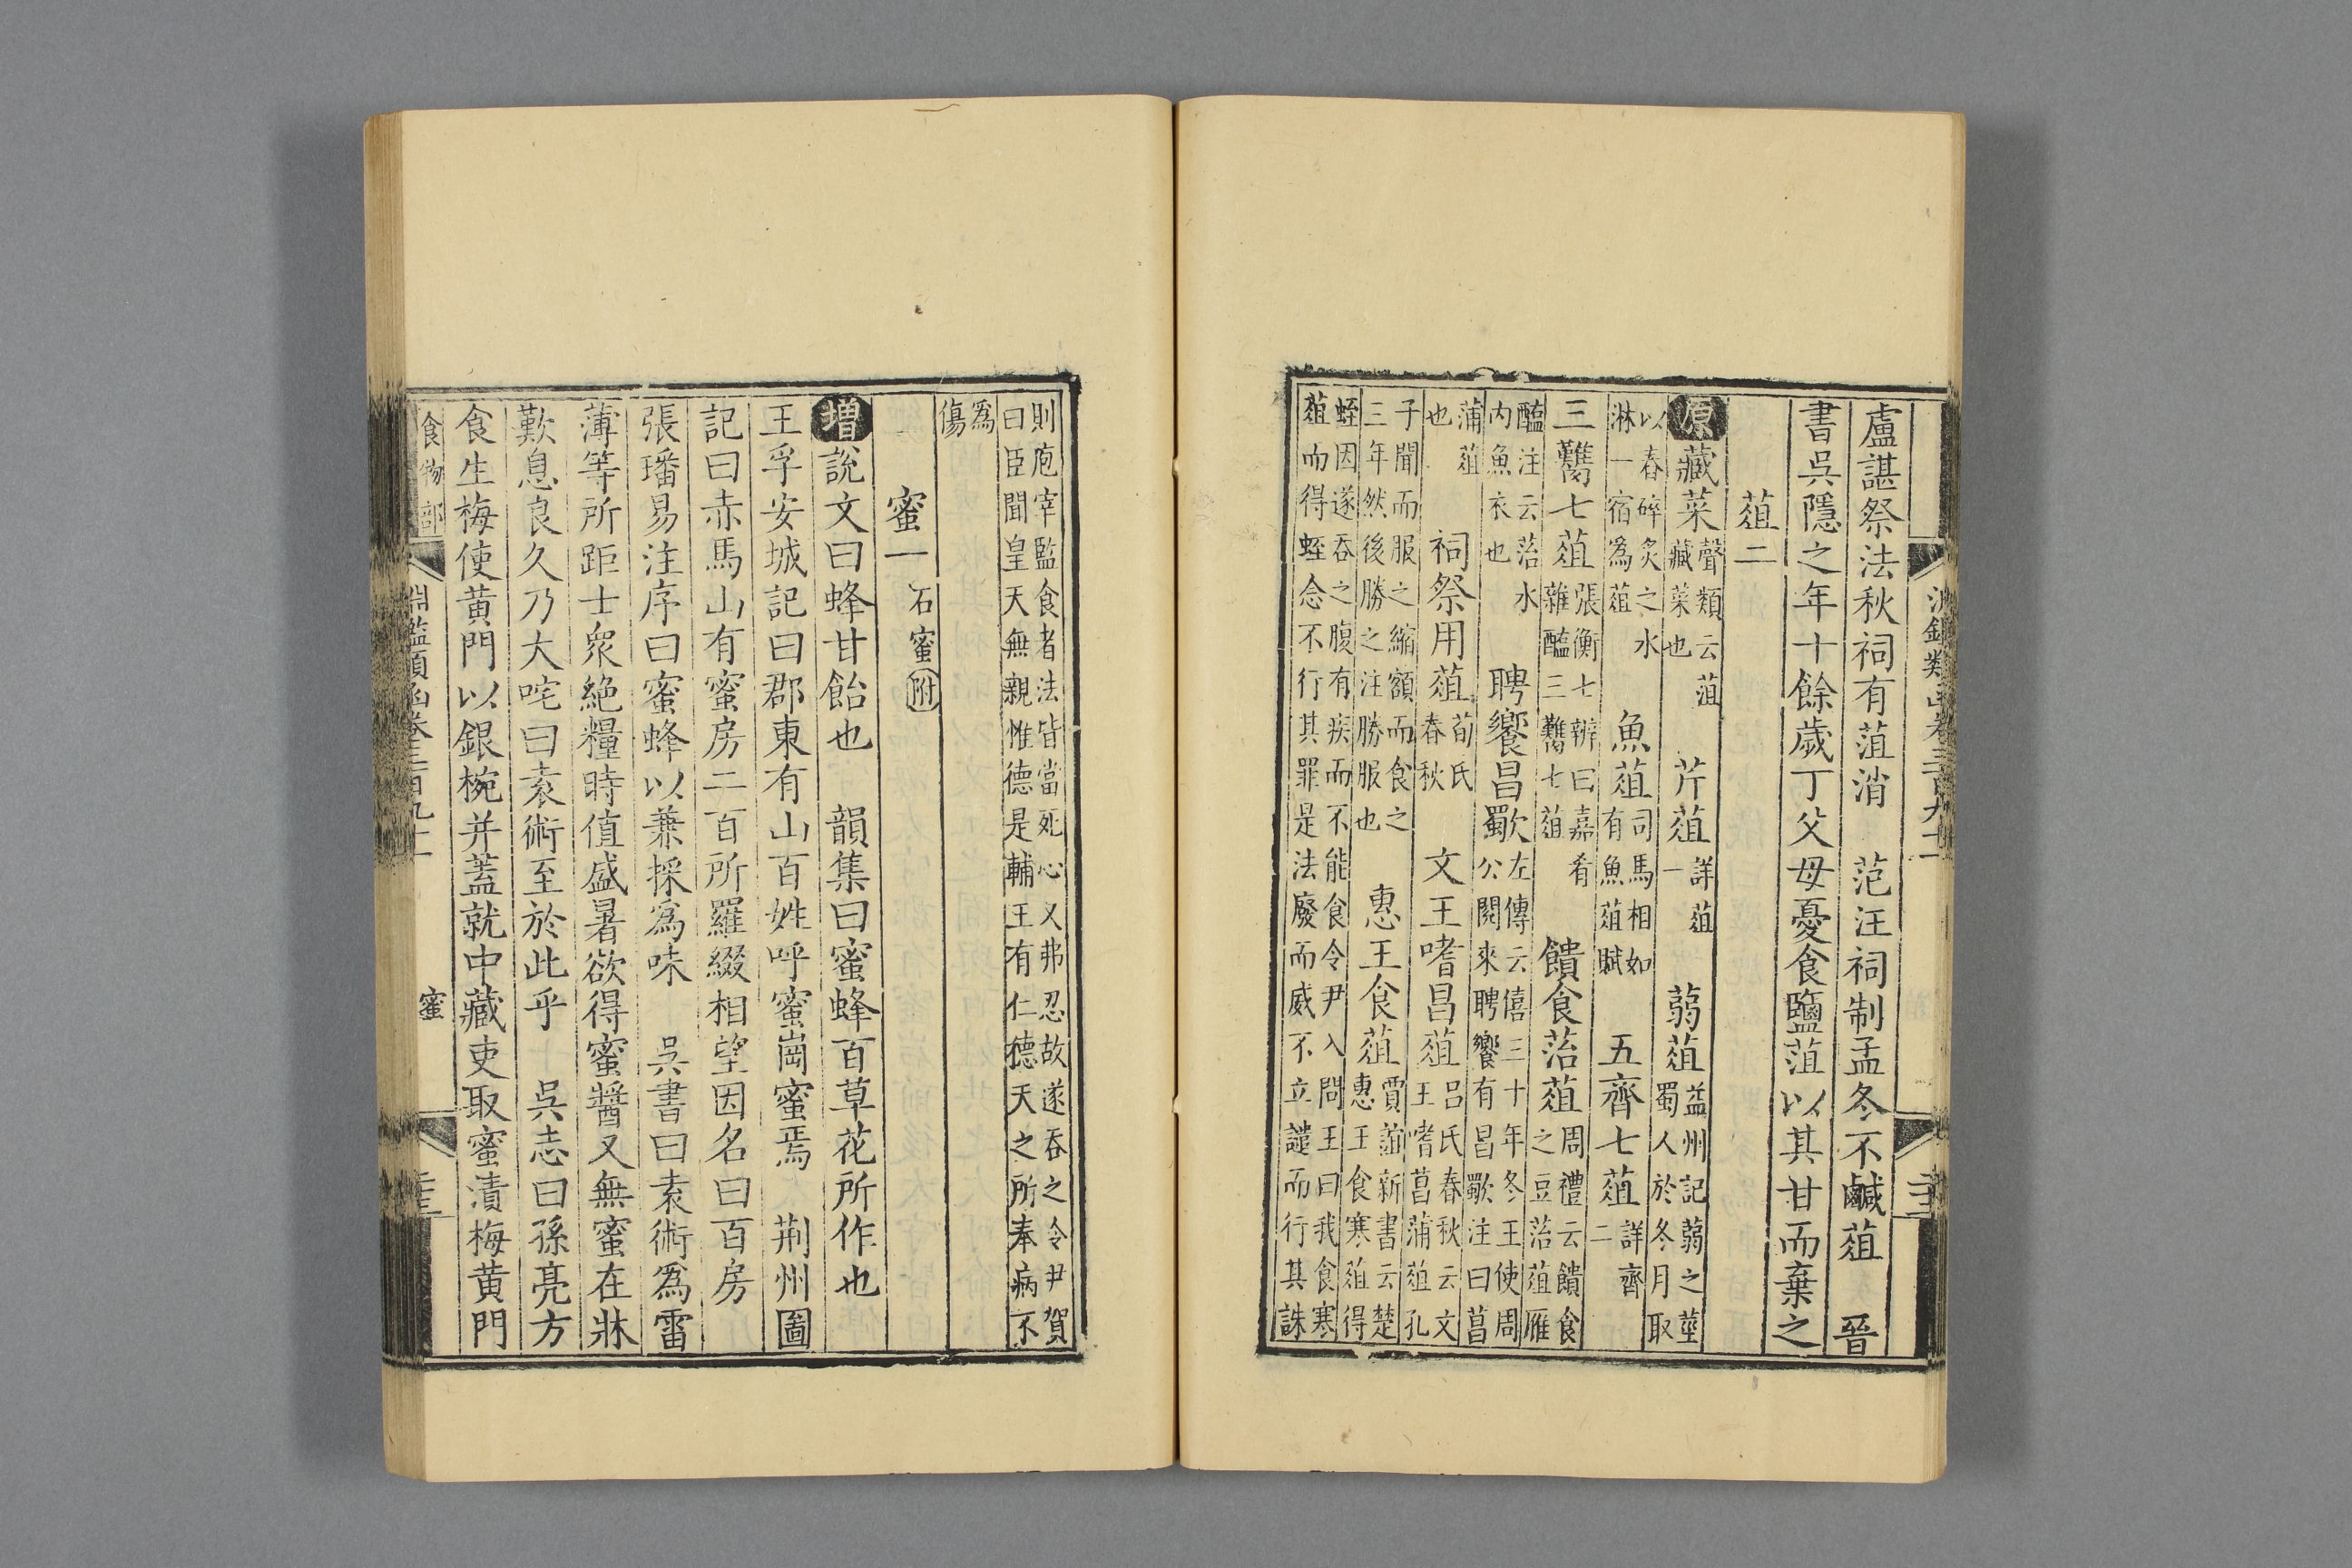 淵鑑類函卷三百九十一
盧諶祭法秋祠有菹消　范汪祠制孟冬不鹹葅　晉
書吳隱之年十餘歲丁父母憂食鹽菹以其甘而棄之
葅二
原藏菜聲類云菹藏菜也　芹葅詳葅一　蒻葅益州記蒻之莖蜀人於冬月取
以舂碎炙之水淋一宿爲葅　魚葅司馬相如有魚葅賦　五齊七葅詳齊二
三臡七葅張衡七辨曰嘉肴雜醢三臡七葅　饋食菭葅周禮云饋食之豆菭葅雁
醢注云菭水內魚衣也　聘饗昌歜左傳云僖三十年冬王使周公閱來聘饗有昌歜注曰菖
蒲葅也　祠祭用葅荀氏春秋　文王嗜昌葅呂氏春秋云文王嗜菖蒲葅孔
子聞而服之縮額而食之三年然後勝之注勝服也　惠王食葅賈誼新書云楚惠王食寒葅得
蛭因遂吞之腹有疾而不能食令尹入問王曰我食寒葅而得蛭念不行其罪是法廢而威不立譴而行其誅
則庖宰監食者法皆當死心又弗忍故遂吞之令尹賀曰臣聞皇天無親惟德是輔王有仁德天之所奉病不
爲傷
蜜一石蜜附
增說文曰蜂甘飴也　韻集曰蜜蜂百草花所作也
王孚安城記曰郡東有山百姓呼蜜崗蜜焉　荆州圖
記曰赤馬山有蜜房二百所羅綴相望因名曰百房
張璠易注序曰蜜蜂以兼採爲味　吳書曰袁術爲雷
薄等所距士衆絕糧時值盛暑欲得蜜醬又無蜜在牀
歎息良久乃大咤曰袁術至於此乎　吳志曰孫亮方
食生梅使黃門以銀椀并蓋就中藏吏取蜜漬梅黃門
食物部　淵鑑類函卷三百九十一　蜜